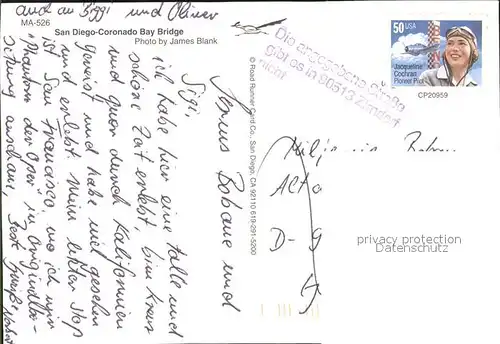 auch an Siggi und Oliver
MA-526
San Diego-Coronado Bay Bridge
Photo by James Blank
© Road Runner Card Co., San Diego, CA 92110 619-291-5200
50 USA
Jacqueline
Cochran
Pioneer Pilot
CP20959
Die angegebene Straße
gibt es in 90513 Zirndorf
nicht
und
Sigi,
ich habe hier eine tolle und
schöne Zeit erlebt, bin kreuz
und quer durch Kalifornien
gereist und habe viel gesehen
und erlebt. Mein letzter Stop
ist San Francisco, wo ich mir
"Phantom der Oper" in Originalbe-
setzung anschaue,
D-
privacy protection
www.ansichtskarten-center.de